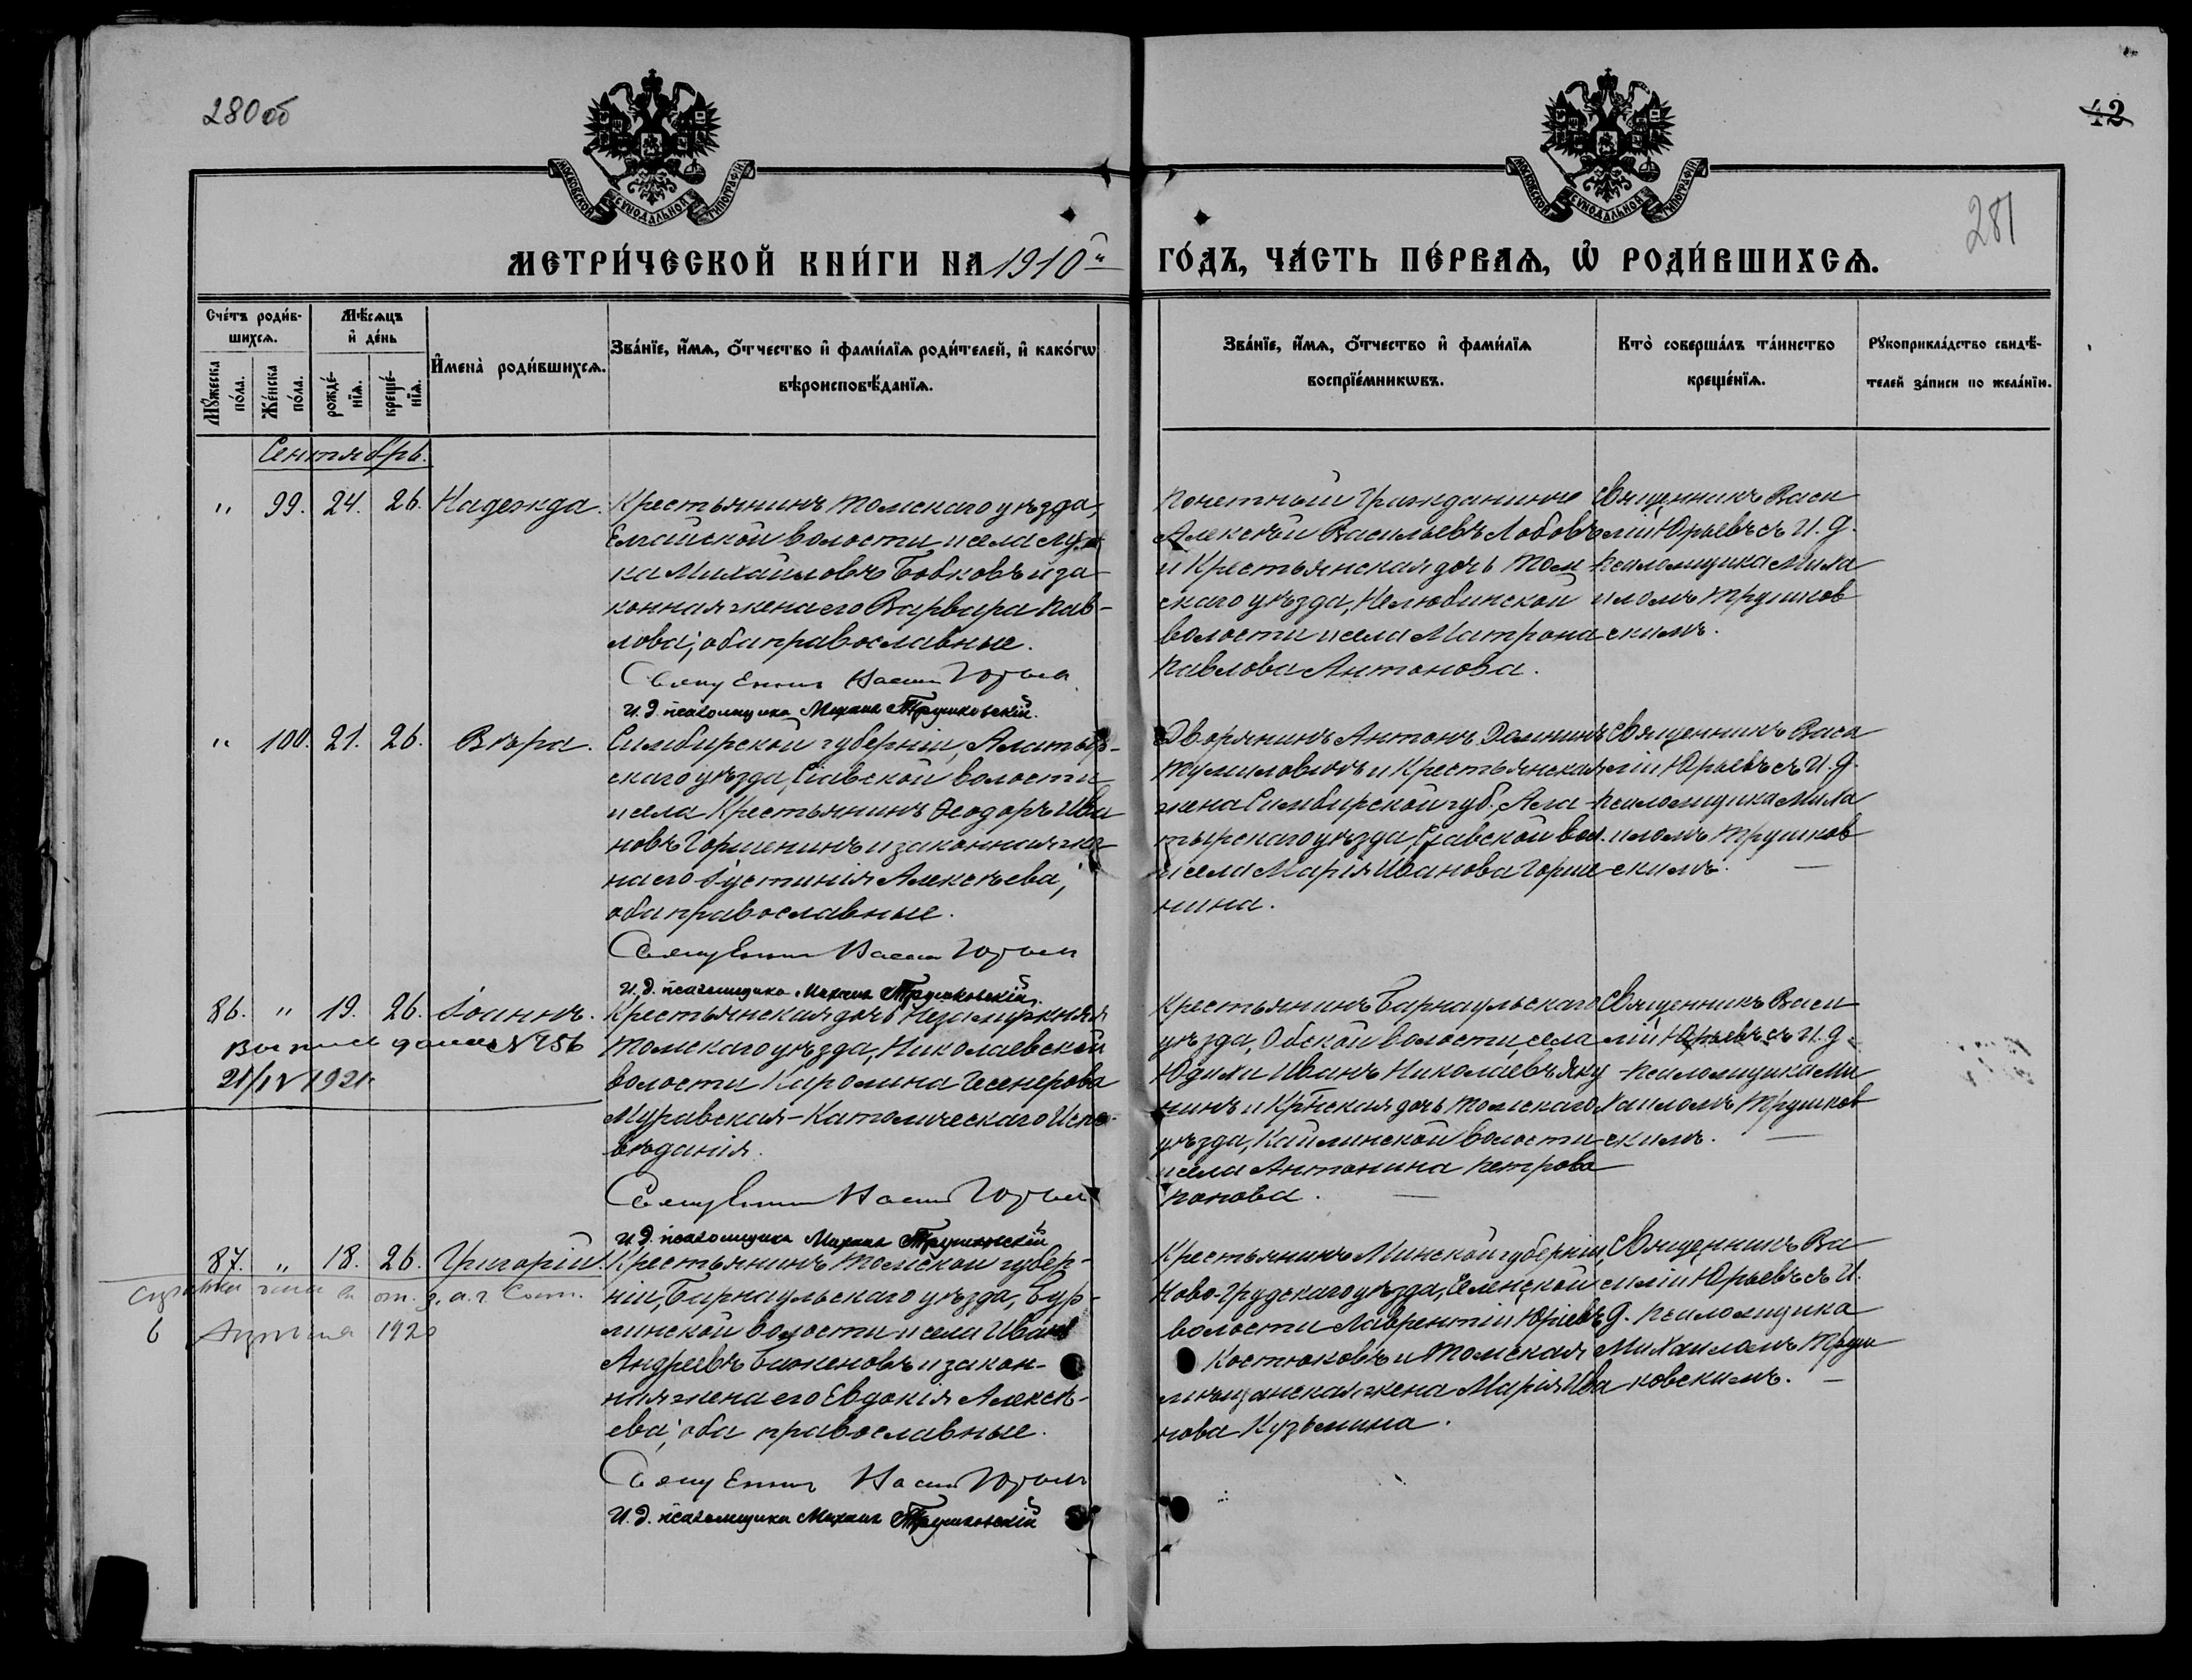 280 об
42
281
МОСКОВСКОЙ СѴНОДАЛЬНОЙ ТИПОГРАФІИ
МОСКОВСКОЙ СѴНОДАЛЬНОЙ ТИПОГРАФІИ
МЕТРИ́ЧЕСКОЙ КНИ́ГИ НА 1910й
ГО́ДЪ, ЧА́СТЬ ПЕ́РВАѦ, Ѽ РОДИ́ВШИХСѦ.
Сче́тъ роди́в-
шихсѧ.
Мꙋ́жеска по́ла.
Же́нска по́ла.
Мѣ́сѧцъ
и҆ де́нь
рожде́-
нїѧ.
креще́-
нїѧ.
И҆мена̀ роди́вшихсѧ.
Зва́нїе, и҆́мѧ, ѻ҆́тчество и҆ фами́лїѧ роди́телей, и҆ како́гѡ
вѣроисповѣ́данїѧ.
Зва́нїе, и҆́мѧ, ѻ҆́тчество и҆ фами́лїѧ
воспрїе́мникѡвъ.
Кто̀ соверша́лъ та́инство
креще́нїѧ.
Рꙋкоприкла́дство свидѣ́-
телей за́писи по жела́нїю.
Сентябрь.
" 99. 24. 26. Надежда.
Крестьянинъ Томскаго уѣзда,
Елгайской волости и села Лу
ка Михайловъ Бобковъ и за-
конная жена его Варвара Пав-
лова; оба православные.
Священникъ Васил Юрьев
И. д. псаломщика Михаил Трушковскій.
Почетный Гражданинъ
Алексѣй Васильевъ Лобовъ
и Крестьянская дочь Том
скаго уѣзда, Нелюбинской
волости и села Матрона
Павлова Антонова.
Священникъ Васи
лій Юрьевъ съ И. д.
псаломщика Миха
иломъ Трушков
скимъ.
" 100. 21. 26. Вѣра.
Симбирской губерніи, Алатыр-
скаго уѣзда, Сіявской волости
и села Крестьянинъ Ѳеодоръ Ива
новъ Горшенинъ и законная же
на его Іустинія Алексѣева,
оба православные.
Священник Васил Юрьев
И. д. псаломщика Михаил Трушковскій.
Дворянинъ Антонъ
Тумиловичъ и Крестьянская
жена Симбирской губ., Ала-
тырскаго уѣзда, Сіавской вол.
и села Марія Иванова Горше-
нина.
Священникъ Васи
лій Юрьевъ съ И. д.
псаломщика Миха
иломъ Трушков
скимъ. —
86. " 19. 26. Іоаннъ.
Выпись дана № 256
21/IV 1921.
Крестьянская дочь Незамужняя
Томскаго уѣзда, Николаевской
волости Каролина Гесенерова
Муравская - Католическаго Испо-
вѣданія.
Священник Васил Юрьев
И. д. псаломщика Михаил Трушковскій
Крестьянинъ Барнаульскаго
уѣзда, Обской волости, села
Юдихи Иванъ Николаевъ Яку
нинъ и Кр̃нская дочь Томскаго
уѣзда, Кайлинской волости
и села Антонина Петрова
Попова. —
Священникъ Васи
лій Юрьевъ съ И. д.
псаломщика Ми
хаиломъ Трушков
скимъ. —
87. " 18. 26. Григорій.
6 1920
Крестьянинъ Томской губер-
ніи, Барнаульскаго уѣзда, Бур-
линской волости и села Иванъ
Андреевъ Баженовъ и закон-
ная жена его Евдокія Алексѣ-
ева; оба православные.
Священник Васил Юрьев
И. д. псаломщика Михаил Трушковскій
Крестьянинъ Минской губерніи,
Ново-Грудскаго уѣзда,
волости Лаврентій Юрьевъ
Костюковъ и Томская
мѣщанская жена Марія Ива
нова Кузьмина.
Священникъ Ва
силій Юрьевъ съ И.
д. псаломщика
Михаиломъ Труш
ковскимъ. —